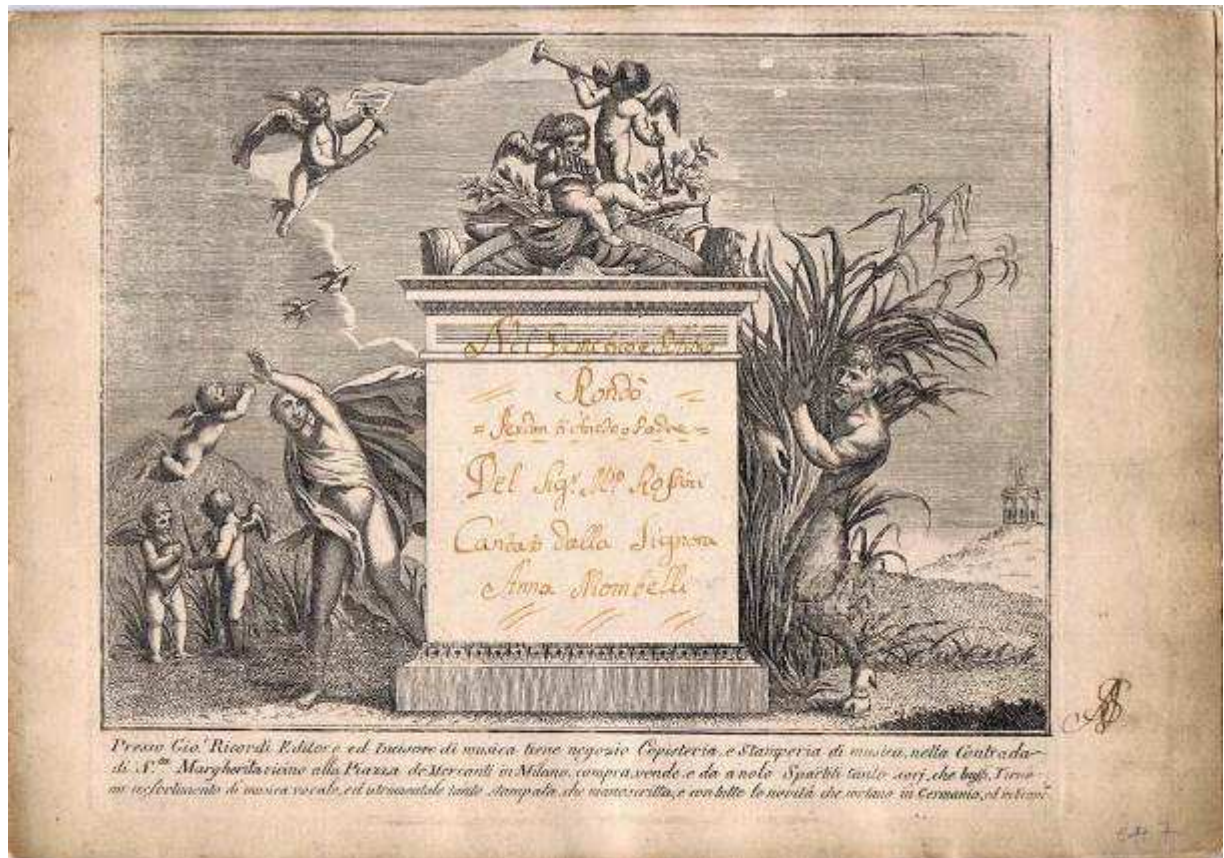 Nel
Rondò
o Padre =
Del Sigr. Mo. Rossini
Cantato dalla Signora
Anna Mombelli
Presso Gio. Ricordi Editore ed Incisore di musica tiene negozio Copisteria, e Stamperia di musica, nella Contrada
di S.ta Margherita vicino alla Piazza de Mercanti in Milano, compra, vende, e da a nolo Spartiti tanto serj, che buffi, Tiene
assortimento di musica vocale, ed istrumentale tanto stampata, che manoscritta, e con tutte le novità che sortano in Germania, ed